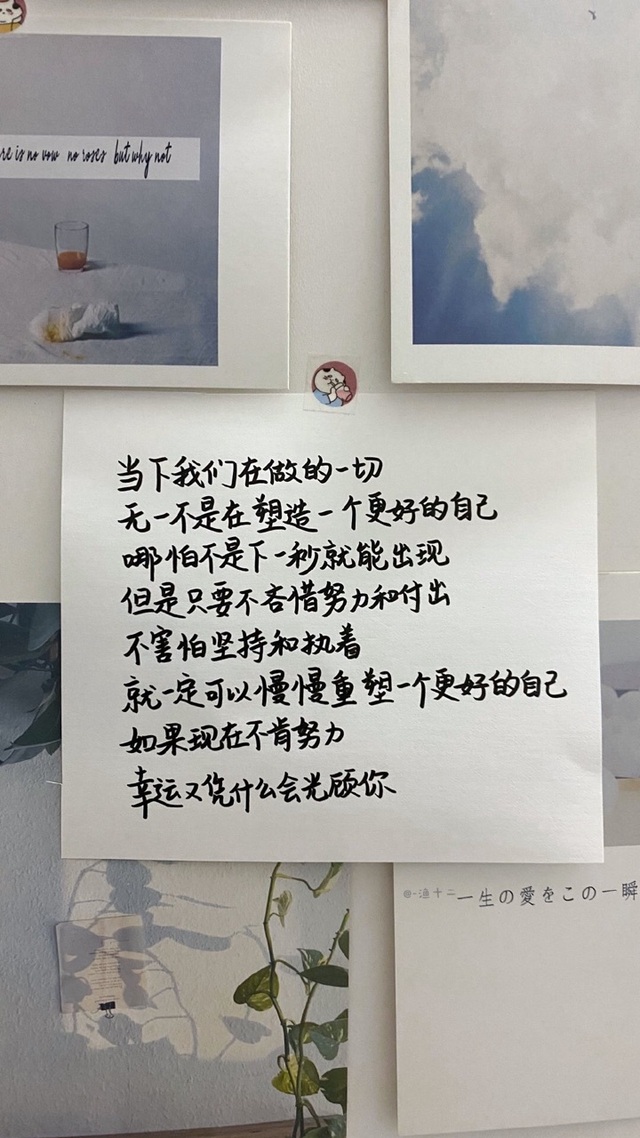 is no vow no roses but why not
当下我们在做的一切
无一不是在塑造一个更好的自己
哪怕不是下一秒就能出现
但是只要不吝惜努力和付出
不害怕坚持和执着
就一定可以慢慢重塑一个更好的自己
如果现在不肯努力
幸运又凭什么会光顾你
@一渔十二
一生の愛をこの一瞬